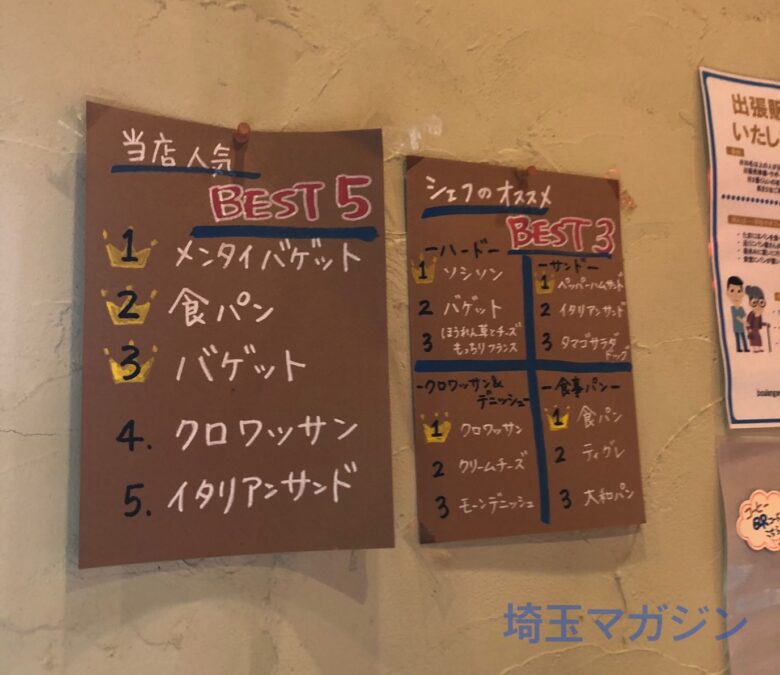 当店人気
BEST 5
1 メンタイバゲット
2 食パン
3 バゲット
4. クロワッサン
5. イタリアンサンド
シェフのオススメ
BEST 3
ーハードー
1 ソシソン
2 バゲット
3 ほうれん草とチーズ
もっちりフランス
-サンドー
1 ペッパーハムサンド
2 イタリアンサンド
3 タマゴサラダ
ドッグ
-クロワッサン&
デニッシュ-
1 クロワッサン
2 クリームチーズ
3 モーンデニッシュ
-食事パン-
1 食パン
2 ティグレ
3 大和パン
出張販
いたし
コーヒー
埼玉マガジン